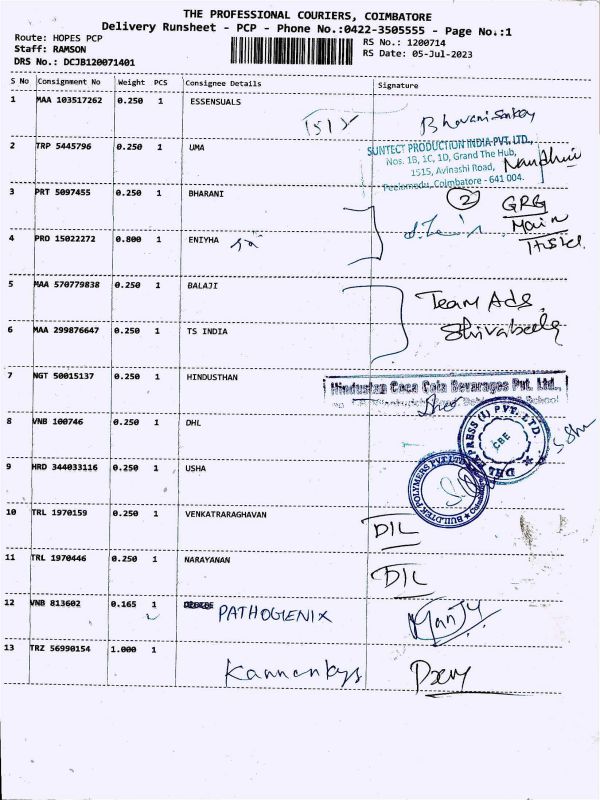 THE PROFESSIONAL COURIERS, COIMBATORE
Delivery Runsheet - PCP - Phone No.:0422-3505555 - Page No.:1
Route: HOPES PCP
RS No.: 1200714
Staff: RAMSON
RS Date: 05-Jul-2023
DRS No.: DCJB120071401
S No Consignment No Weight PCS Consignee Details Signature
1 MAA 103517262 0.250 1 ESSENSUALS
2 TRP 5445796 0.250 1 UMA
SUNTECT PRODUCTION INDIA PVT. LTD.,
Nos. 1B, 1C, 1D, Grand The Hub,
1515, Avinashi Road,
Peelamedu, Coimbatore - 641 004.
Nandhini
3 PRT 5097455 0.250 1 BHARANI
2
GRG
Main
4 PRO 15022272 0.800 1 ENIYHA
5 MAA 570779838 0.250 1 BALAJI
Team Ads
6 MAA 299876647 0.250 1 TS INDIA
7 NGT 50015137 0.250 1 HINDUSTHAN
Hindustan Coca Cola Bevarages Pvt. Ltd.,
8 VNB 100746 0.250 1 DHL
DHL EXPRESS (I) PVT. LTD.
CBE
9 HRD 344033116 0.250 1 USHA
BUILDTEK POLYMERS PVT LTD
10 TRL 1970159 0.250 1 VENKATRARAGHAVAN
DIL
11 TRL 1970446 0.250 1 NARAYANAN
DIL
12 VNB 813602 0.165 1 PATHOGENIX
Manju
13 TRZ 56990154 1.000 1